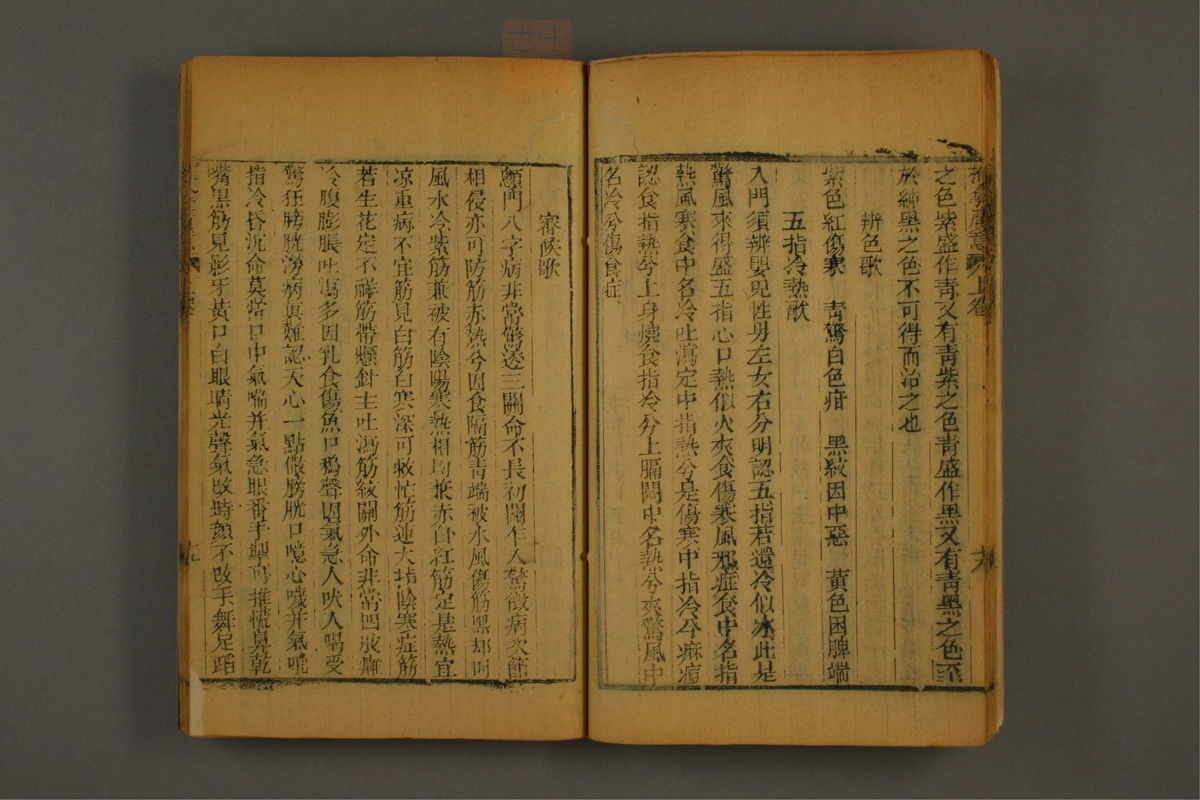 之色紫盛作青又有青紫之色青盛作黑又有青黑之色至
於純黑之色不可得而治之也
辨色歌
紫色紅傷寒 青驚白色疳 黑紋因中惡 黃色困脾端
五指冷熱歌
入門須辨嬰兒性男左女右分明認五指若還冷似冰此是
驚風來得盛五指心口熱似火夾食傷寒風邪症食中名指
熱風寒食中名冷吐瀉定中指熱兮是傷寒中指冷兮麻痘
認食指熱兮上身燒食指冷兮上膈悶中名熱兮夾驚風中
名冷兮傷食症
審候歌
顖門八字病非常驚透三關命不長初關作人驚微病次節
相侵亦可防筋赤熱兮因食隔筋青端被水風傷筋黑却因
風水冷紫筋兼被有陰陽寒熱相均兼赤白紅筋定是熱宜
凉重病不宜筋見白筋白寒深可救忙筋連大指陰寒症筋
若生花定不祥筋帶懸針主吐瀉筋紋關外命非常四肢癱
冷腹膨脹吐瀉多因乳食傷魚口鴉聲因氣急人吠人喝受
驚狂膀胱澇病真難認天心一點
指冷昏沉命莫當口中氣喘并氣急眼番手掣可推慌鼻乾
嘴黑筋見影牙黃口白眼睛光聲氣改時顏不改手舞足蹈
上卷